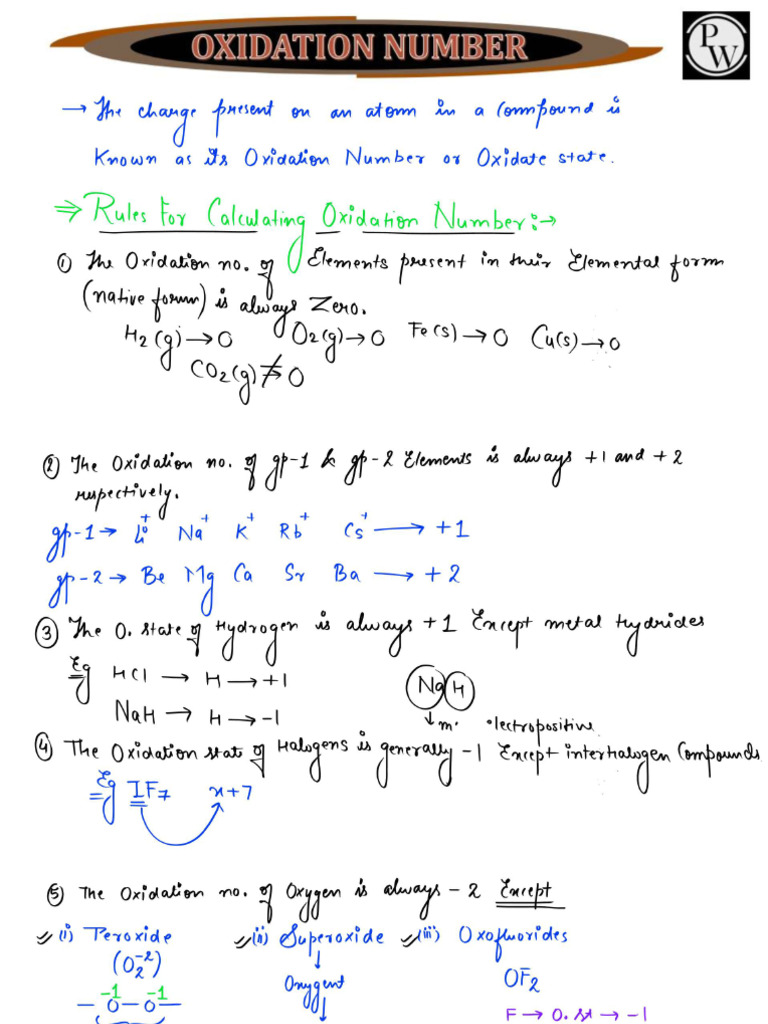 OXIDATION NUMBER
PW
→ The charge present on an atom in a compound is
Known as its Oxidation Number or Oxidate state.
⇒ Rules For Calculating Oxidation Number:→
① The Oxidation no. of Elements present in their Elemental form
(native form) is always Zero.
H2(g) → 0 O2(g) → 0 Fe(s) → 0 Cu(s) → 0
CO2(g) ↛ 0
② The Oxidation no. of gp-1 & gp-2 Elements is always +1 and +2
respectively.
gp-1 → Li+ Na+ K+ Rb+ Cs+ → +1
gp-2 → Be Mg Ca Sr Ba → +2
③ The O. state of Hydrogen is always +1 Except metal Hydrides
Eg HCl → H → +1
NaH → H → -1
Na H
↓ m. electropositive
④ The Oxidation state of Halogens is generally -1 Except interhalogen Compounds
Eg IF7 x+7
⑤ The Oxidation no. of Oxygen is always -2 Except
(i) Peroxide (ii) Superoxide (iii) Oxofluorides
(O2-2) ↓ OF2
-1 -1 Oxygent
-O-O- ↓ F → O.st → -1